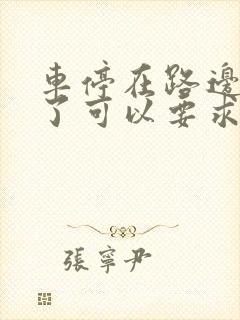 車停在路邊
了可以要求
張寧尹